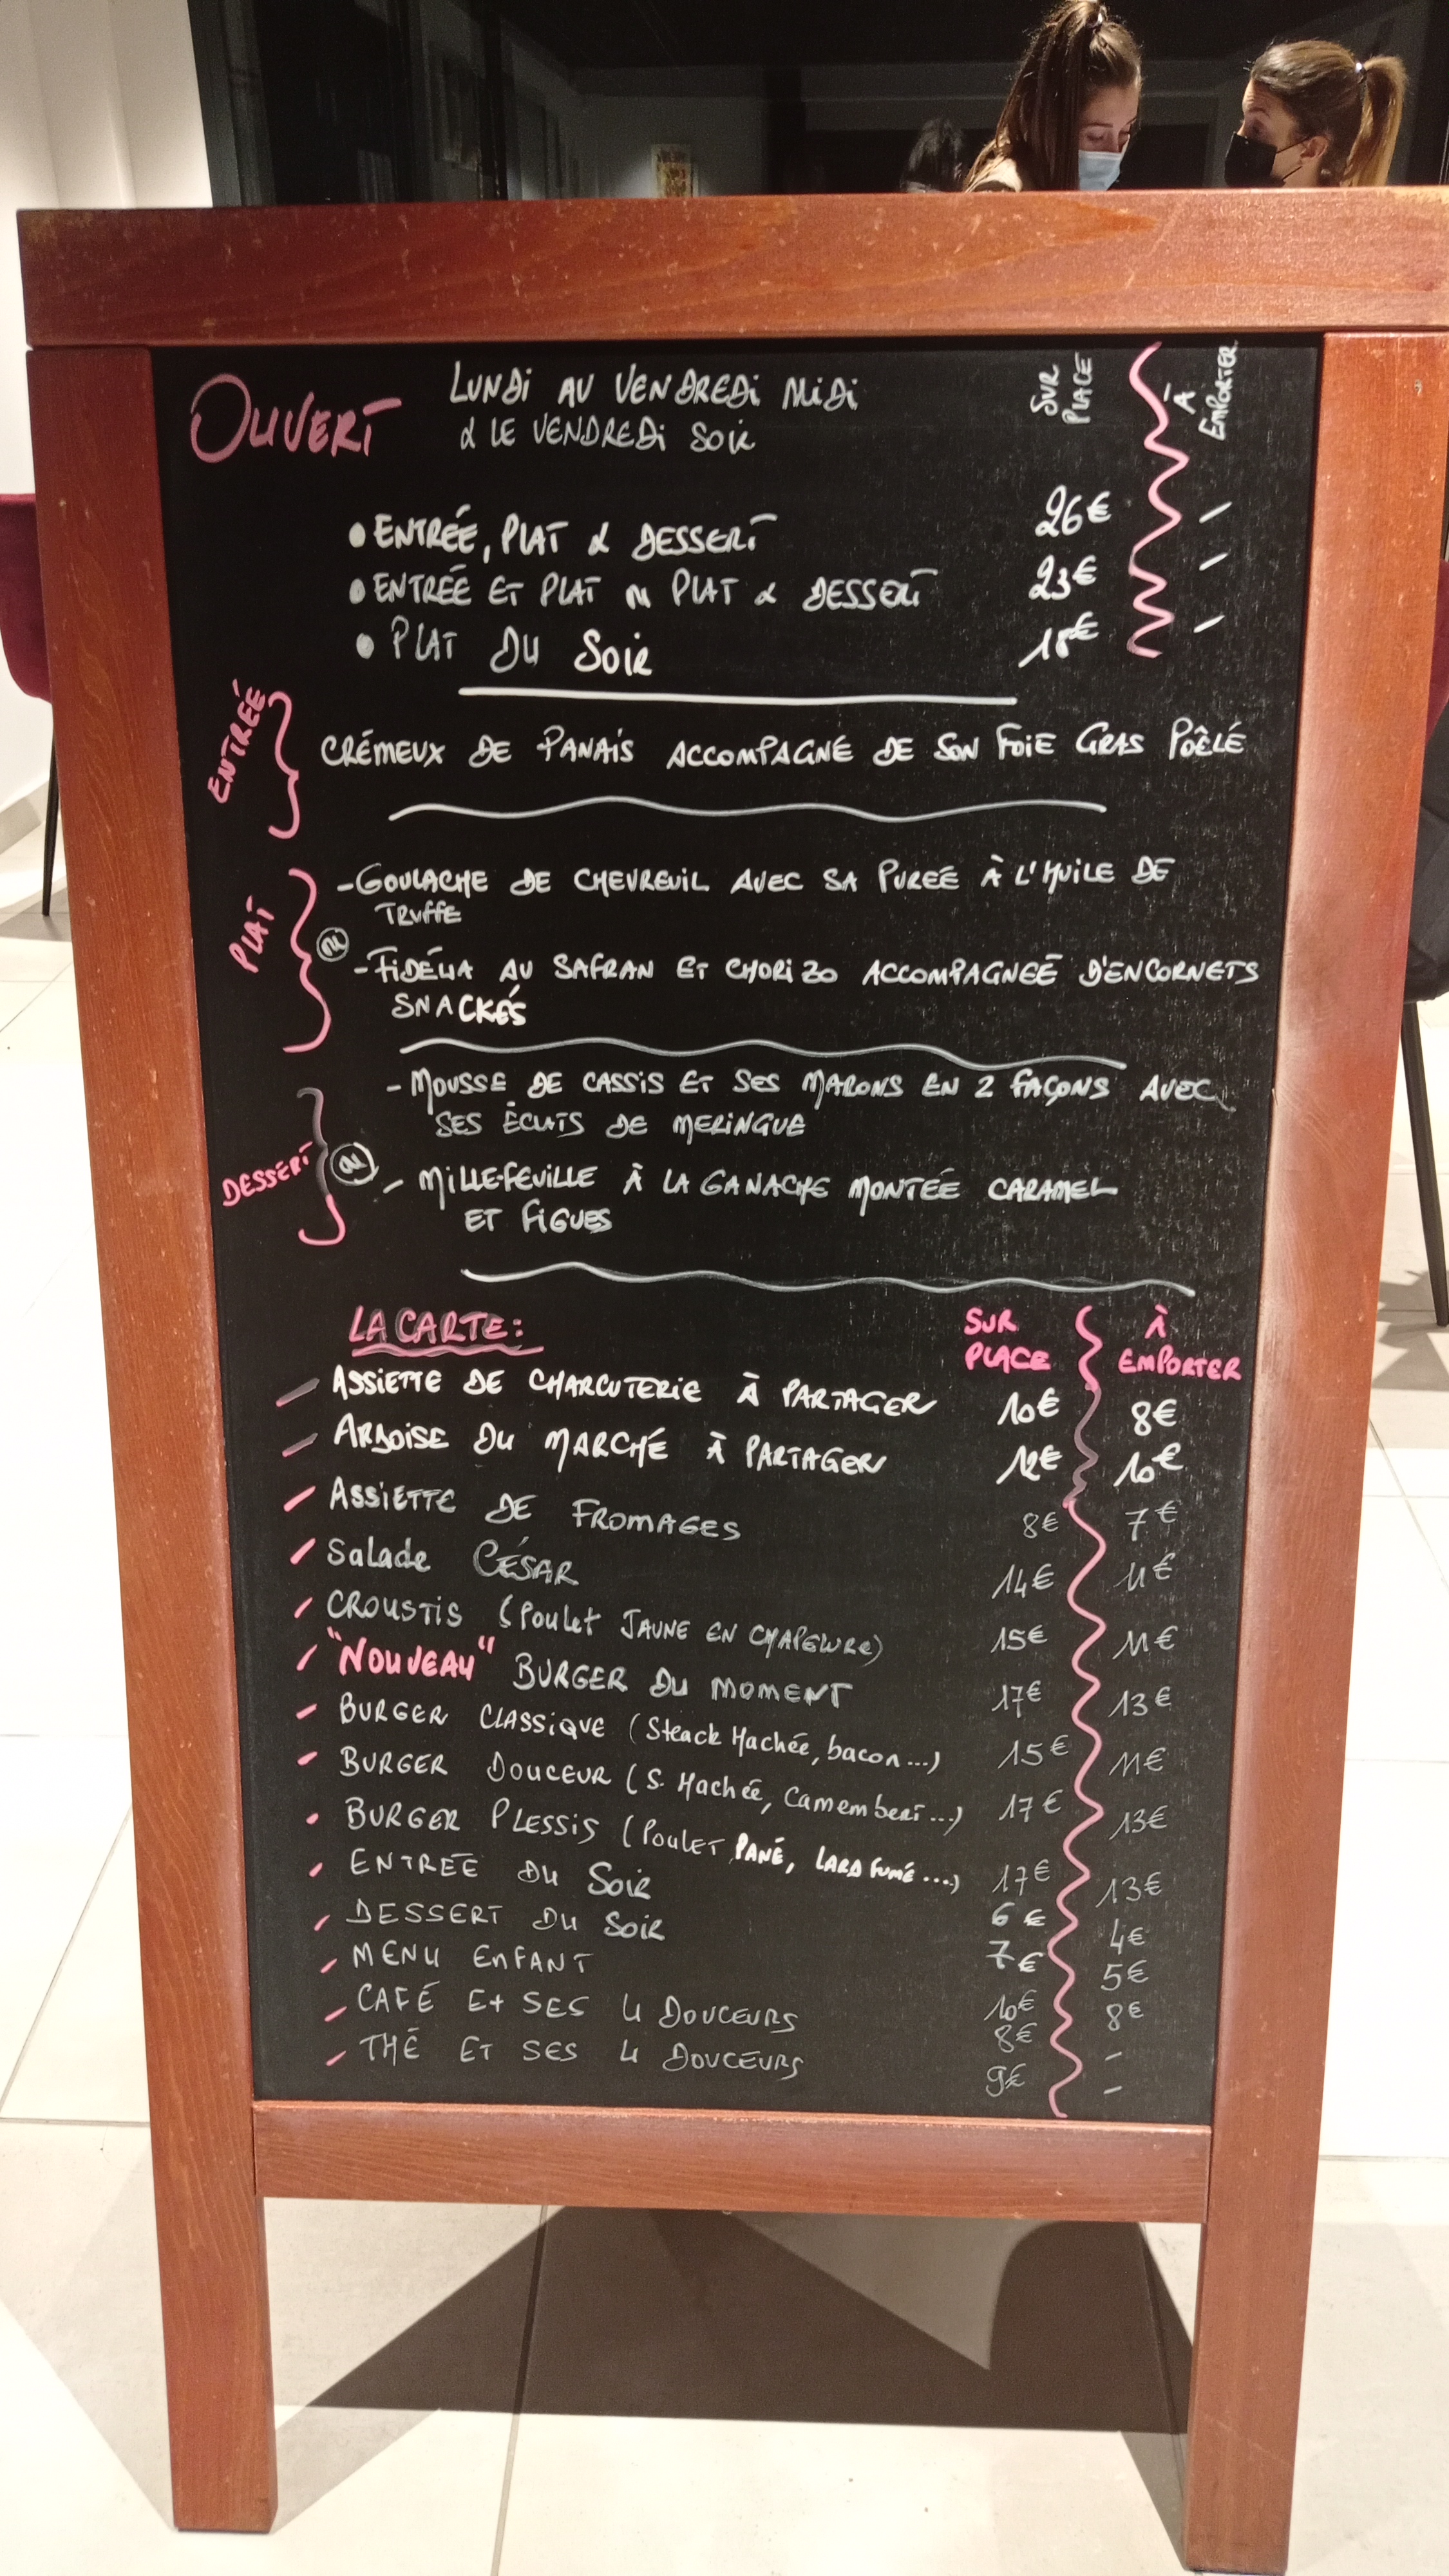 OUVERT LUNDI AU VENDREDI MIDI
& LE VENDREDI SOIR
SUR PLACE
À EMPORTER
• ENTRÉE, PLAT & DESSERT 26€ /
• ENTRÉE ET PLAT ou PLAT & DESSERT 23€ /
• PLAT DU SOIR 18€ /
ENTRÉE
CRÉMEUX DE PANAIS ACCOMPAGNÉ DE SON FOIE GRAS POÊLÉ
PLAT
- GOULACHE DE CHEVREUIL AVEC SA PUREÉ À L'HUILE DE
TRUFFE
ou
- FIDÉLIA AU SAFRAN ET CHORIZO ACCOMPAGNEÉ D'ENCORNETS
SNACKÉS
DESSERT
- MOUSSE DE CASSIS ET SES MARONS EN 2 FAÇONS AVEC
SES ÉCLATS DE MERINGUE
ou
- MILLE-FEUILLE À LA GANACHE MONTÉE CARAMEL
ET FIGUES
LA CARTE: SUR PLACE À EMPORTER
- ASSIETTE DE CHARCUTERIE À PARTAGER 10€ 8€
- ARDOISE DU MARCHÉ À PARTAGER 12€ 10€
- ASSIETTE DE FROMAGES 8€ 7€
- Salade CÉSAR 14€ 11€
- CROUSTIS (Poulet JAUNE EN CHAPELURE) 15€ 11€
- "NOUVEAU" BURGER DU MOMENT 17€ 13€
- BURGER CLASSIQUE (Steack Hachée, bacon...) 15€ 11€
- BURGER DOUCEUR (S. Hachée, Camembert...) 17€ 13€
- BURGER PLESSIS (Poulet PANÉ, LARD FUMÉ...) 17€ 13€
- ENTRÉE DU SOIR 6€ 4€
- DESSERT DU SOIR 7€ 5€
- MENU ENFANT 10€ 8€
- CAFÉ Et SES 4 DOUCEURS 8€ -
- THÉ ET SES 4 DOUCEURS 9€ -